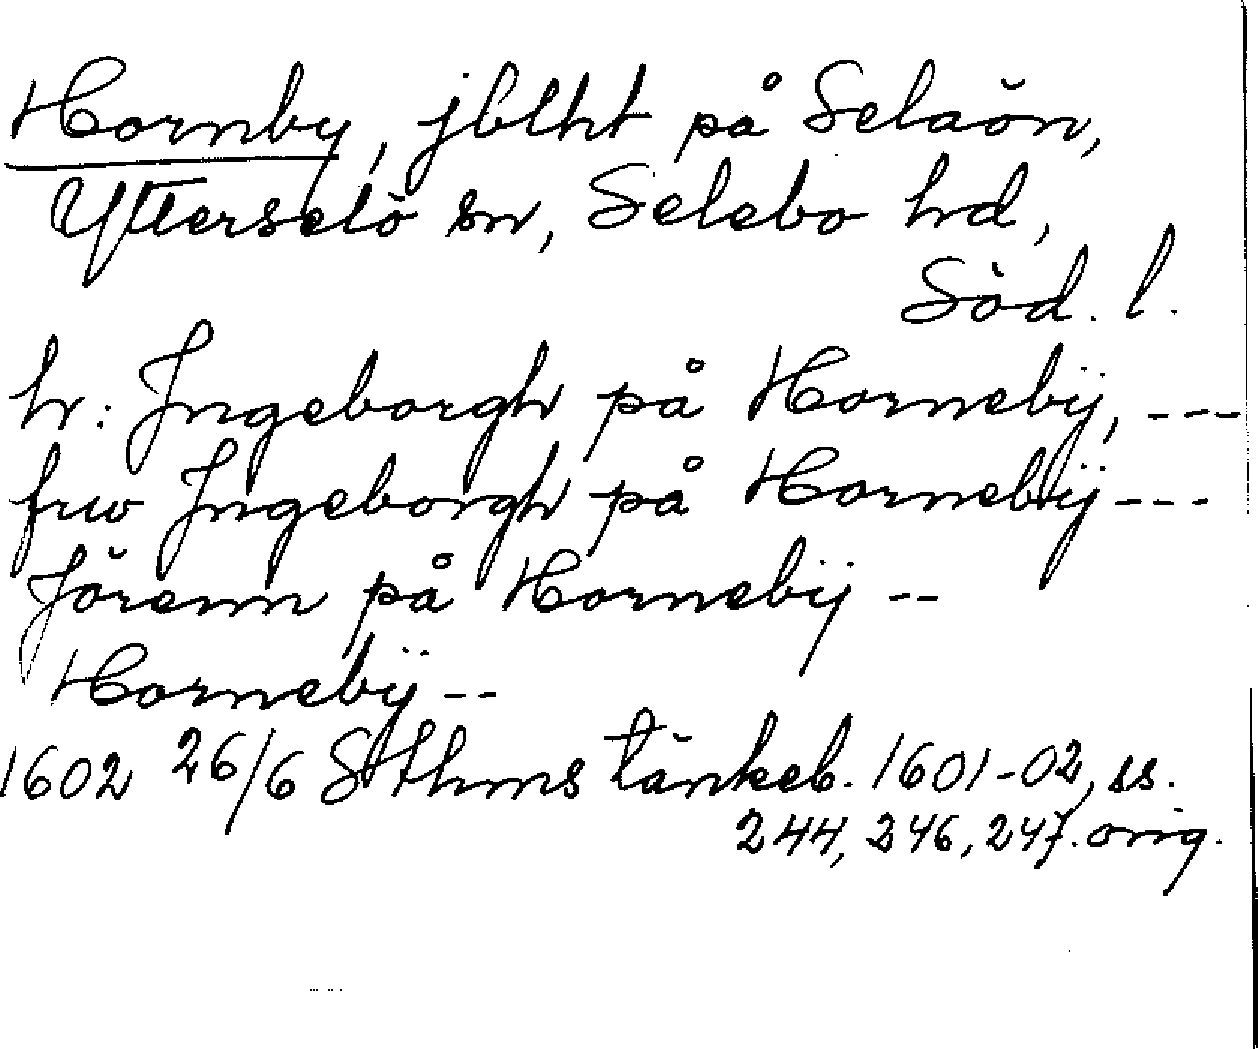 Hornby, jblht på Selaön,
Ytterselö sn, Selebo hrd,
Söd. l.
hr: Ingeborgh på Hornebÿ, ---
frw Ingeborgh på Hornebÿ ---
Jörenn på Hornebÿ --
Hornebÿ --
1602 26/6 Sthms tänkeb. 1601-02, ss.
244, 246, 247. orig.